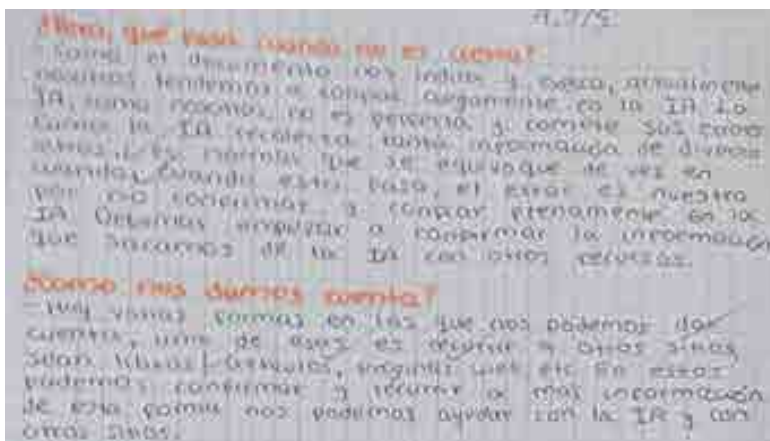 que pasa cuando no es cierta?
Como el documento nos indica y actualmente
nosotros tendemos a confiar ciegamente en la IA. La
IA, como nosotros, no es perfecta y comete sus errores
Como la IA recolecta tanta información de diversos
es normal que se equivoque de vez en
cuando, cuando esto pasa, el error es nuestro
por no confirmar y confiar plenamente en la
IA. Debemos empezar a confirmar la información
que sacamos de la IA con otros recursos.
¿Como nos damos cuenta?
- Hay varias formas en las que nos podemos dar
cuenta, una de esas es recurrir a otros sitios,
sean libros, articulos, paginas web, etc. En estos
podemos confirmar y recurrir a mas información
de esta forma nos podemos ayudar con la IA y con
otros sitios.